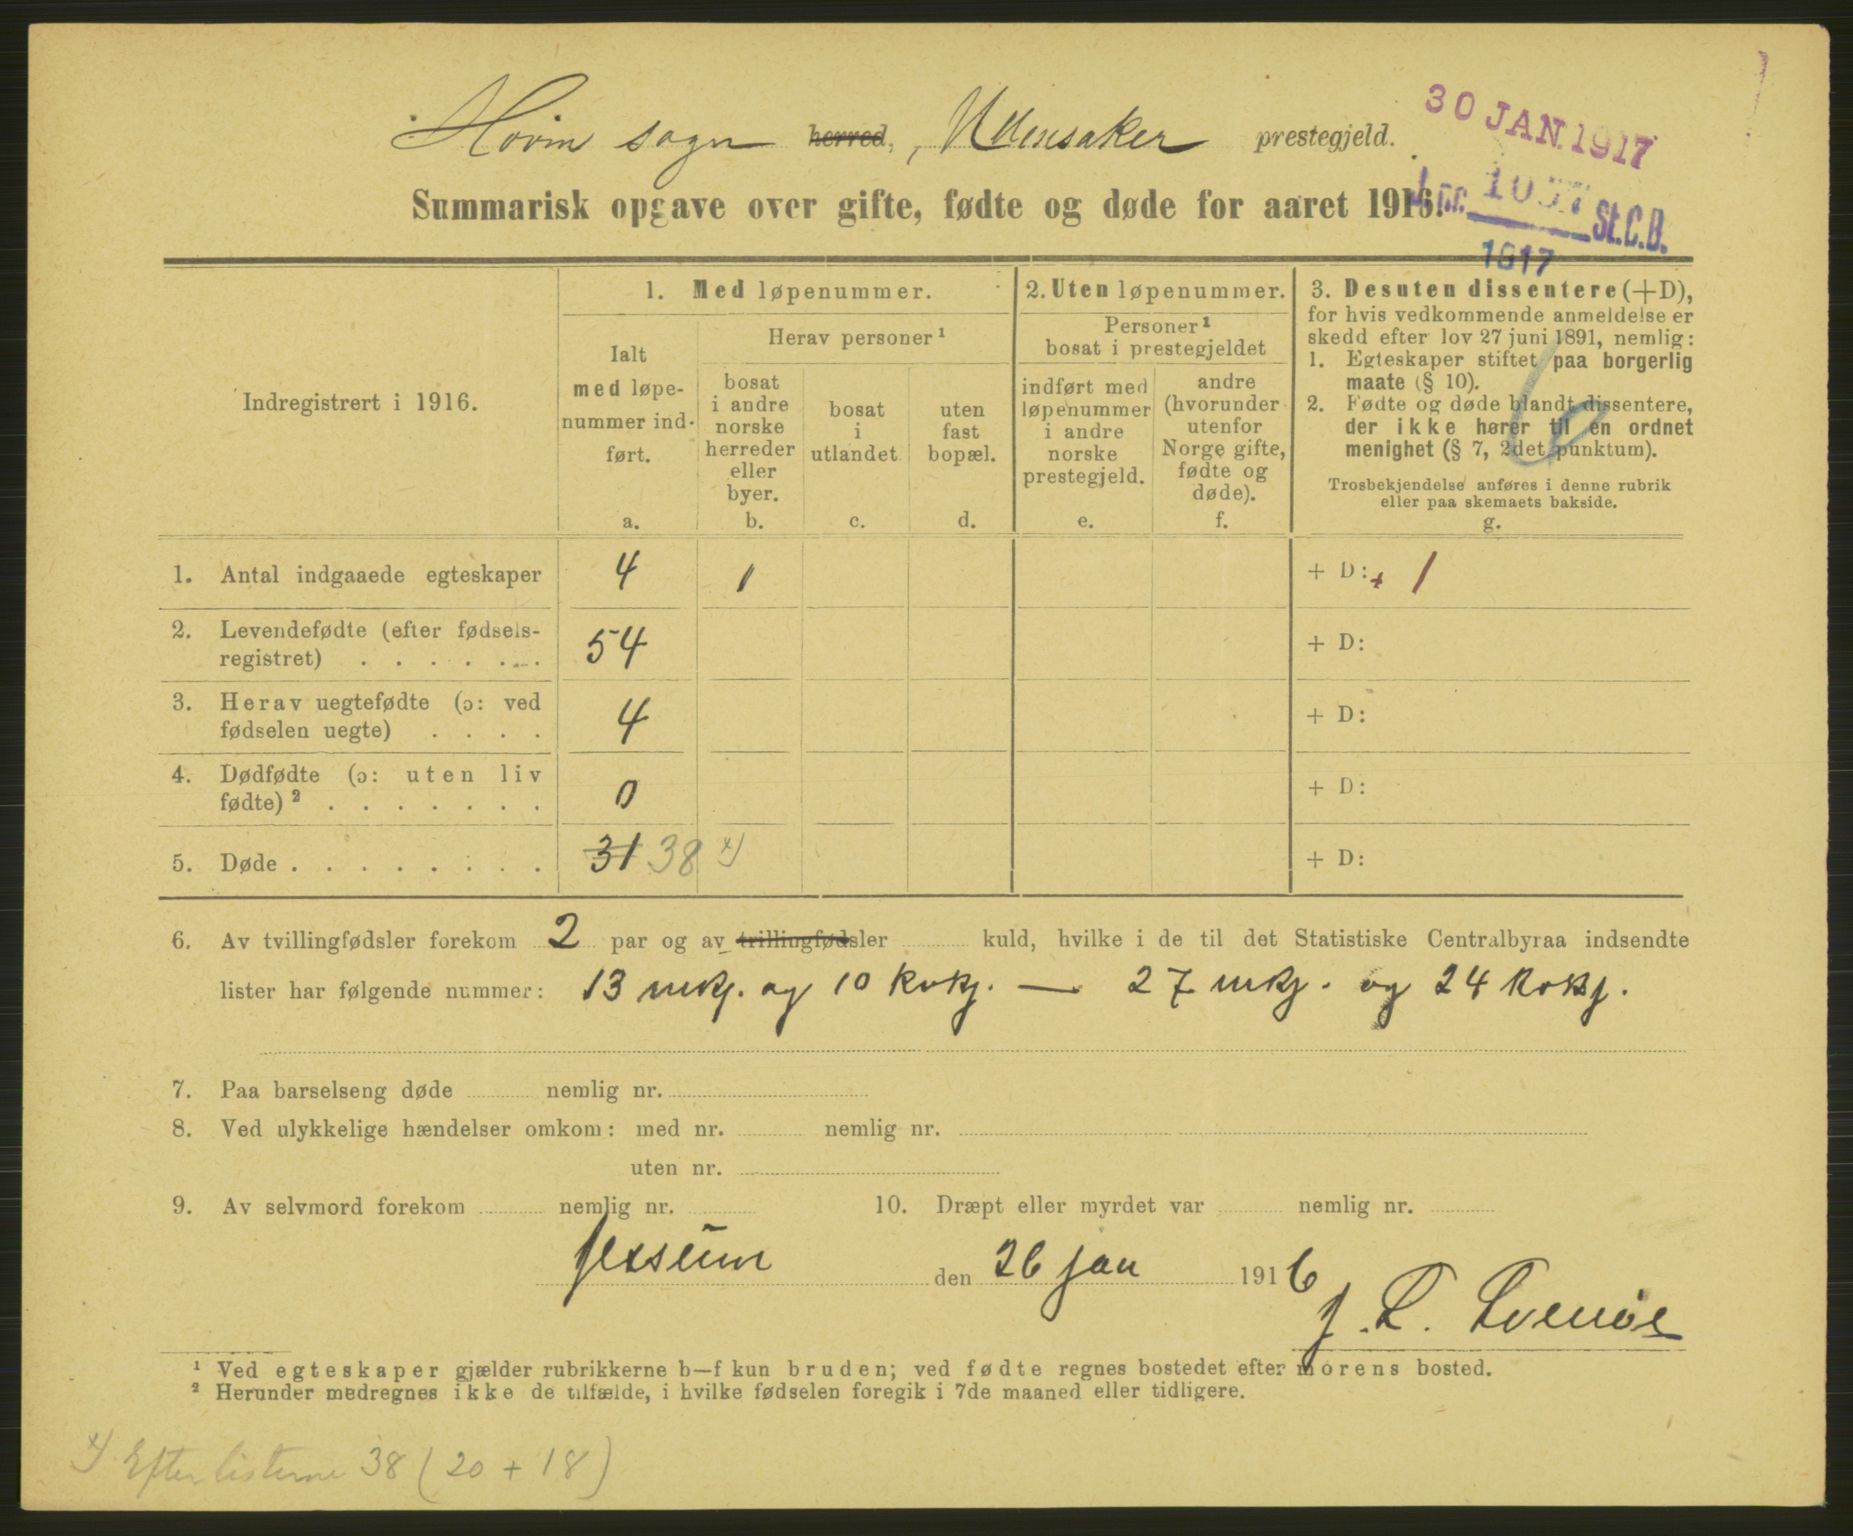 Hovin sogn herred, , Ullensaker prestegjeld.
30 JAN. 1917
J.nr. St.C.B.
1917
Summarisk opgave over gifte, fødte og døde for aaret 1916.
Indregistrert i 1916.
1. Med løpenummer.
Ialt
med løpe-
nummer ind-
ført.
a.
Herav personer ¹
bosat
i andre
norske
herreder
eller
byer.
b.
bosat
i
utlandet
c.
uten
fast
bopæl.
d.
2. Uten løpenummer.
Personer ¹
bosat i prestegjeldet
indført med
løpenummer
i andre
norske
prestegjeld.
e.
andre
(hvorunder
utenfor
Norge gifte,
fødte og
døde).
f.
3. Desuten dissentere (+D),
for hvis vedkommende anmeldelse er
skedd efter lov 27 juni 1891, nemlig:
1. Egteskaper stiftet paa borgerlig
maate (§ 10).
2. Fødte og døde blandt dissentere,
der ikke hører til en ordnet
menighet (§ 7, 2det punktum).
Trosbekjendelse anføres i denne rubrik
eller paa skemaets bakside.
g.
1. Antal indgaaede egteskaper 4 1 + D: + 1
2. Levendefødte (efter fødsels-
registret) . . . . . . . 54 + D:
3. Herav uegtefødte (ɔ: ved
fødselen uegte) . . . . 4 + D:
4. Dødfødte (ɔ: uten liv
fødte) ² . . . . . . . 0 + D:
5. Døde . . . . . . . . 31 38 x) + D:
6. Av tvillingfødsler forekom 2 par og av trillingfødsler kuld, hvilke i de til det Statistiske Centralbyraa indsendte
lister har følgende nummer: 13 mkj. og 10 kvkj. — 27 mkj. og 24 kvkj.
7. Paa barselseng døde nemlig nr.
8. Ved ulykkelige hændelser omkom: med nr. nemlig nr.
uten nr.
9. Av selvmord forekom nemlig nr. 10. Dræpt eller myrdet var nemlig nr.
Jessum den 26 jan 1916
¹ Ved egteskaper gjælder rubrikkerne b—f kun bruden; ved fødte regnes bostedet efter morens bosted.
² Herunder medregnes ikke de tilfælde, i hvilke fødselen foregik i 7de maaned eller tidligere.
x) Efter listerne 38 (20 + 18)